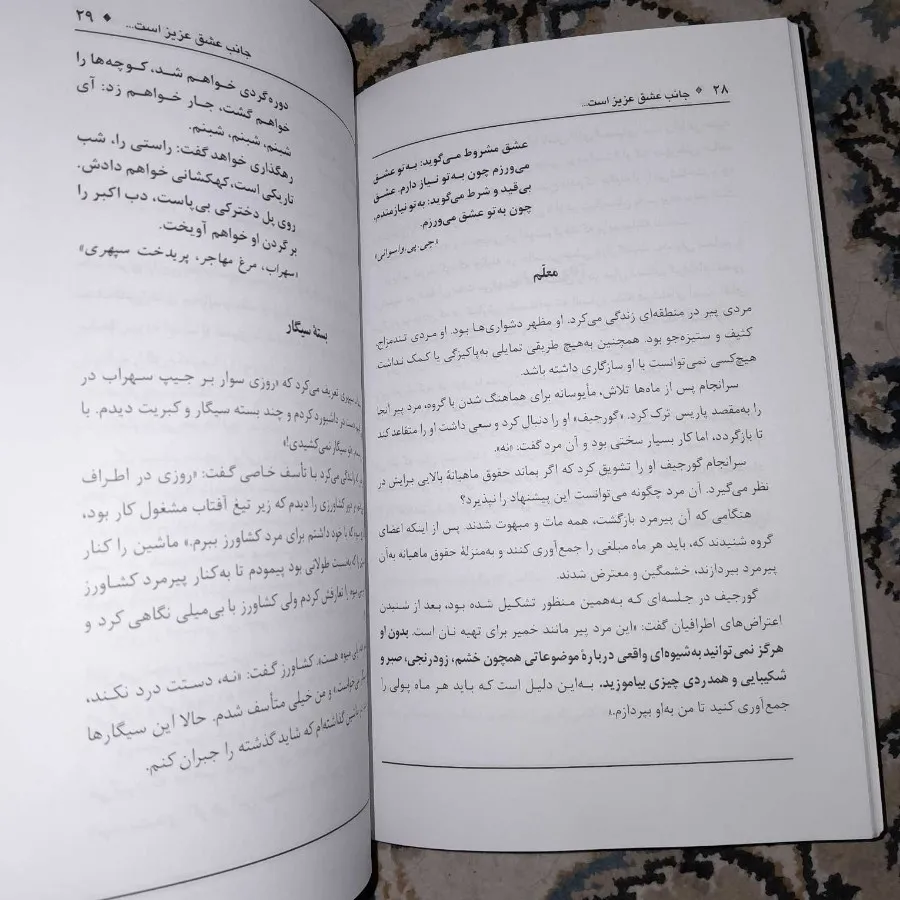 ۲۸ * جانب عشق عزیز است...
عشق مشروط می‌گوید: به‌تو عشق
می‌ورزم چون به‌تو نیاز دارم. عشق
بی‌قید و شرط می‌گوید: به‌تو نیازمندم،
چون به‌تو عشق می‌ورزم.
«جی.پی.واسوانی»
معلّم
مردی پیر در منطقه‌ای زندگی می‌کرد. او مظهر دشواری‌ها بود. او مردی تندمزاج،
کثیف و ستیزه‌جو بود. همچنین به‌هیچ طریقی تمایلی به‌پاکیزگی یا کمک نداشت.
هیچ‌کسی نمی‌توانست با او سازگاری داشته باشد.
سرانجام پس از ماه‌ها تلاش، مأیوسانه برای هماهنگ شدن با گروه، مرد پیر آنجا
را به‌مقصد پاریس ترک کرد. «گورجیف» او را دنبال کرد و سعی داشت او را متقاعد کند
تا بازگردد، اما کار بسیار سختی بود و آن مرد گفت: «نه».
سرانجام گورجیف او را تشویق کرد که اگر بماند حقوق ماهیانهٔ بالایی برایش در
نظر می‌گیرد. آن مرد چگونه می‌توانست این پیشنهاد را نپذیرد؟
هنگامی که آن پیرمرد بازگشت، همه مات و مبهوت شدند. پس از اینکه اعضای
گروه شنیدند که، باید هر ماه مبلغی را جمع‌آوری کنند و به‌منزلهٔ حقوق ماهیانه به‌آن
پیرمرد بپردازند، خشمگین و معترض شدند.
گورجیف در جلسه‌ای که به‌همین منظور تشکیل شده بود، بعد از شنیدن
اعتراض‌های اطرافیان گفت: «این مرد پیر مانند خمیر برای تهیه نان است. بدون او
هرگز نمی‌توانید به‌شیوه‌ای واقعی دربارهٔ موضوعاتی همچون خشم، زودرنجی، صبر و
شکیبایی و همدردی چیزی بیاموزید. به‌این دلیل است که باید هر ماه پولی را
جمع‌آوری کنید تا من به‌او بپردازم.»
جانب عشق عزیز است... ◆ ۲۹
دوره‌گردی خواهم شد، کوچه‌ها را
خواهم گشت، جار خواهم زد: آی
شبنم، شبنم، شبنم.
رهگذاری خواهد گفت: راستی را، شب
تاریکی است، کهکشانی خواهم دادش.
روی پل دخترکی بی‌پاست، دب اکبر را
بر گردن او خواهم آویخت.
«سهراب، مرغ مهاجر، پریدخت سپهری»
بستهٔ سیگار
سپهری تعریف می‌کرد که «روزی سوار بر جیپ سهراب در
داشبورد کردم و چند بسته سیگار و کبریت دیدم. با
سیگار نمی‌کشیدی!»
رانندگی می‌کرد با تأسف خاصی گفت: «روزی در اطراف
کشاورزی را دیدم که زیر تیغ آفتاب مشغول کار بود،
که با خود داشتم برای مرد کشاورز ببرم.» ماشین را کنار
طولانی بود پیمودم تا به‌کنار پیرمرد کشاورز
را تعارفش کردم ولی کشاورز با بی‌میلی نگاهی کرد و
هست». کشاورز گفت: «نه، دستت درد نکند،
و من خیلی متأسف شدم. حالا این سیگارها
گذاشته‌ام که شاید گذشته را جبران کنم.